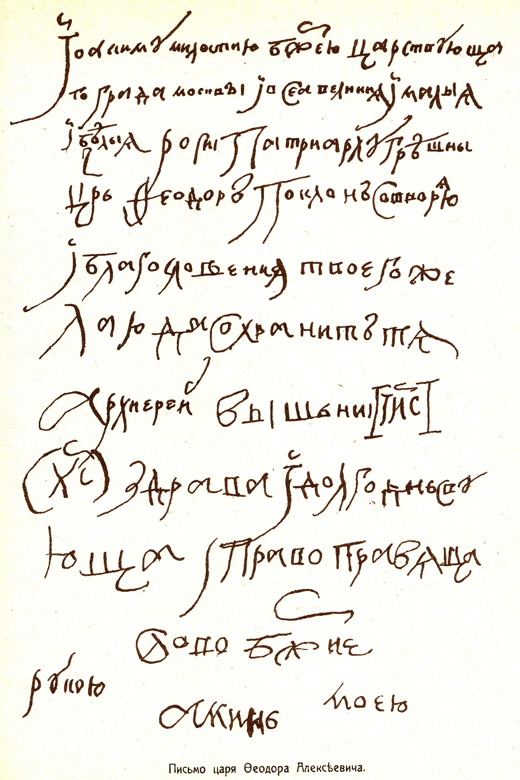 Іоакиму милостию бжею царствующа
го града москвы і всеа великия і малыя
і белыя росиі патриарху грешны
црь Ѳеодоръ поклонъ сотворяю
і благословения твоего же
лаю да сохранит тя
архиереи вышьниі ІИС
ХС здрава і долгоденьству
юща і право правяща
слово бжие
рукою моею
аминь
Письмо царя Ѳеодора Алексѣевича.